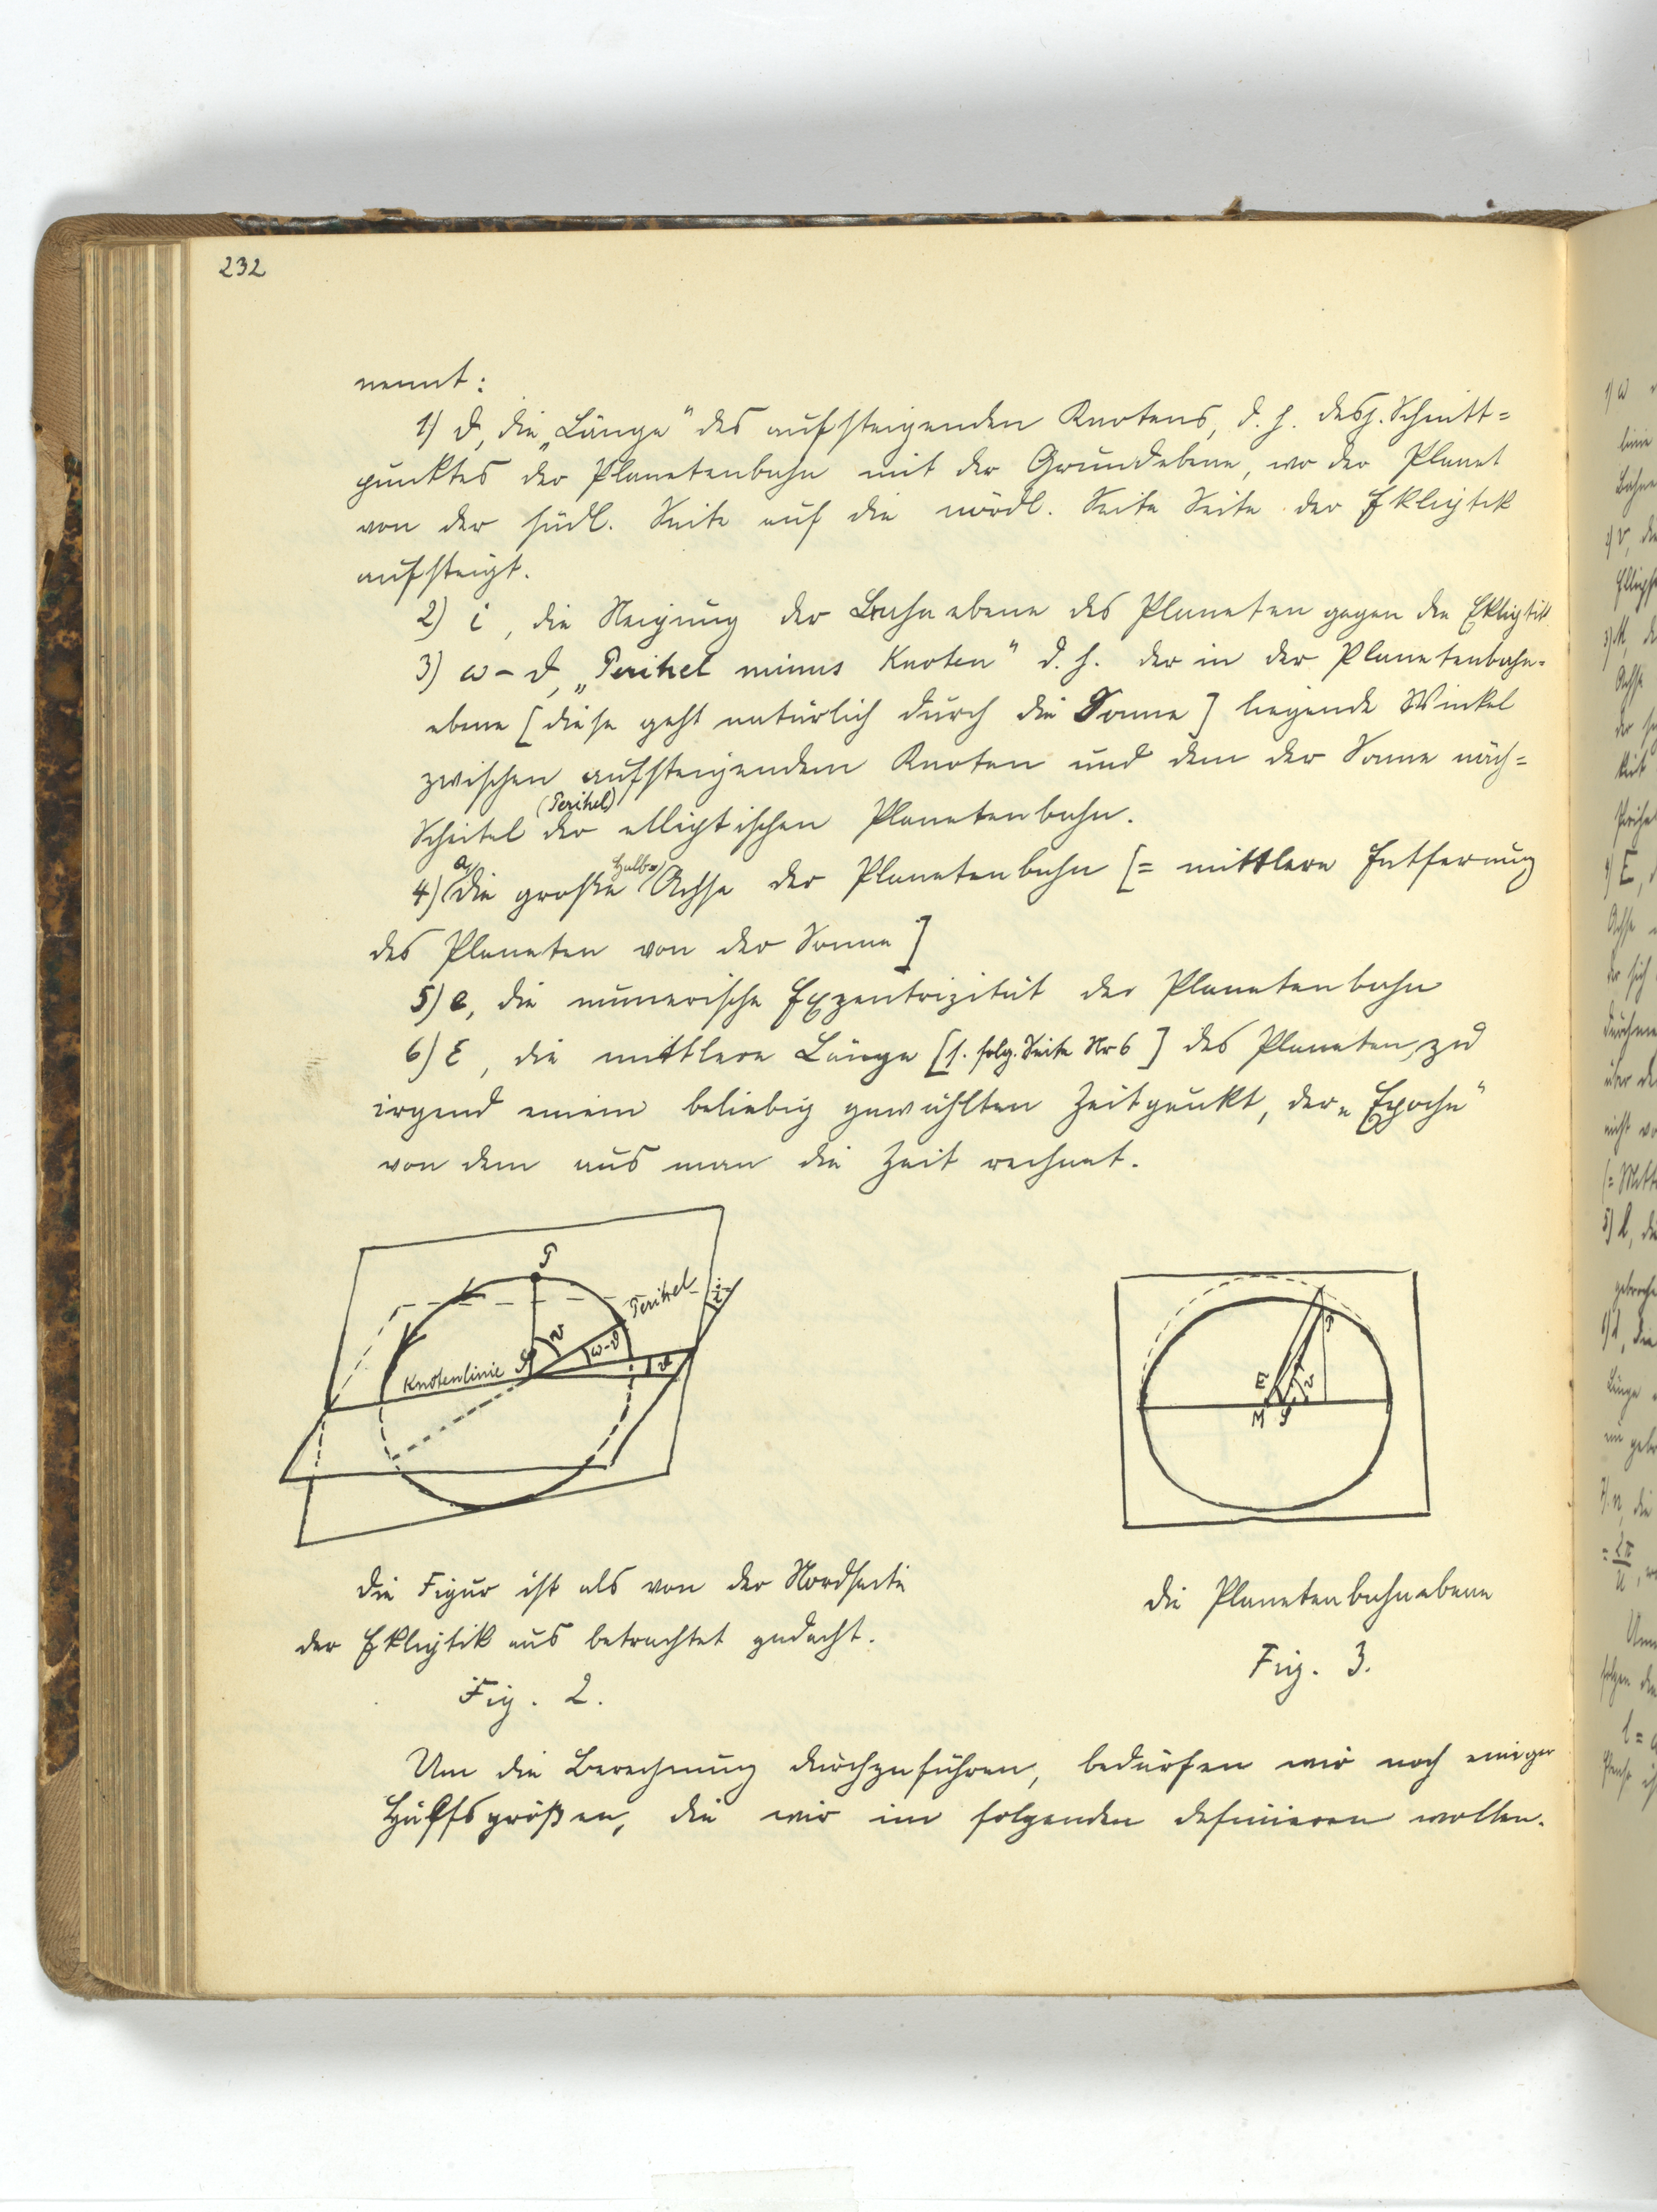 232
nennt:
1) ϑ, die „Länge" des aufsteigenden Knotens, d. h. desj. Schnitt=
punktes der Planetenbahn mit der Grundebene, wo der Planet
von der südl. Seite auf die nördl. Seite Seite der Ekliptik
aufsteigt.
2) i, die Neigung der Bahnebene des Planeten gegen die Ekliptik
3) ω – ϑ, „Perihel minus Knoten" d. h. der in der Planetenbahn-
ebene [diese geht natürlich durch die Sonne] liegende Winkel
zwischen aufsteigendem Knoten und dem der Sonne näch=
(Perihel)
Scheitel der elliptischen Planetenbahn.
a, halbe
4) die große Achse der Planetenbahn [= mittlere Entfernung
des Planeten von der Sonne]
5) e, die numerische Exzentrizität der Planetenbahn
6) ε, die mittlere Länge [s. folg. Seite Nr 6] des Planeten, zu
irgend einem beliebig gewählten Zeitpunkt, der „Epoche"
von dem aus man die Zeit rechnet.
P
Perihel
i
v
ω-ϑ
ϑ
Knotenlinie
S
P
E
v
M S
Die Figur ist als von der Nordseite
der Ekliptik aus betrachtet gedacht.
Fig. 2.
Die Planetenbahnebene
Fig. 3.
Um die Berechnung durchzuführen, bedürfen wir noch einiger
Hülfsgrößen, die wir im folgenden definieren wollen.